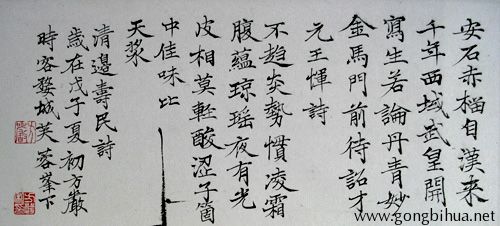 安石赤榴自漢来
千年西域武皇開
寫生若論丹青妙
金馬門前待詔才
元王惲詩
不趍炎勢慣凌霜
腹蘊琼瑶夜有光
皮相莫輕酸涩子箇
中佳味比
天漿
清邊壽民詩
歲在戊子夏初方嚴
時客婺城芙蓉峯下
www.gongbihua.net